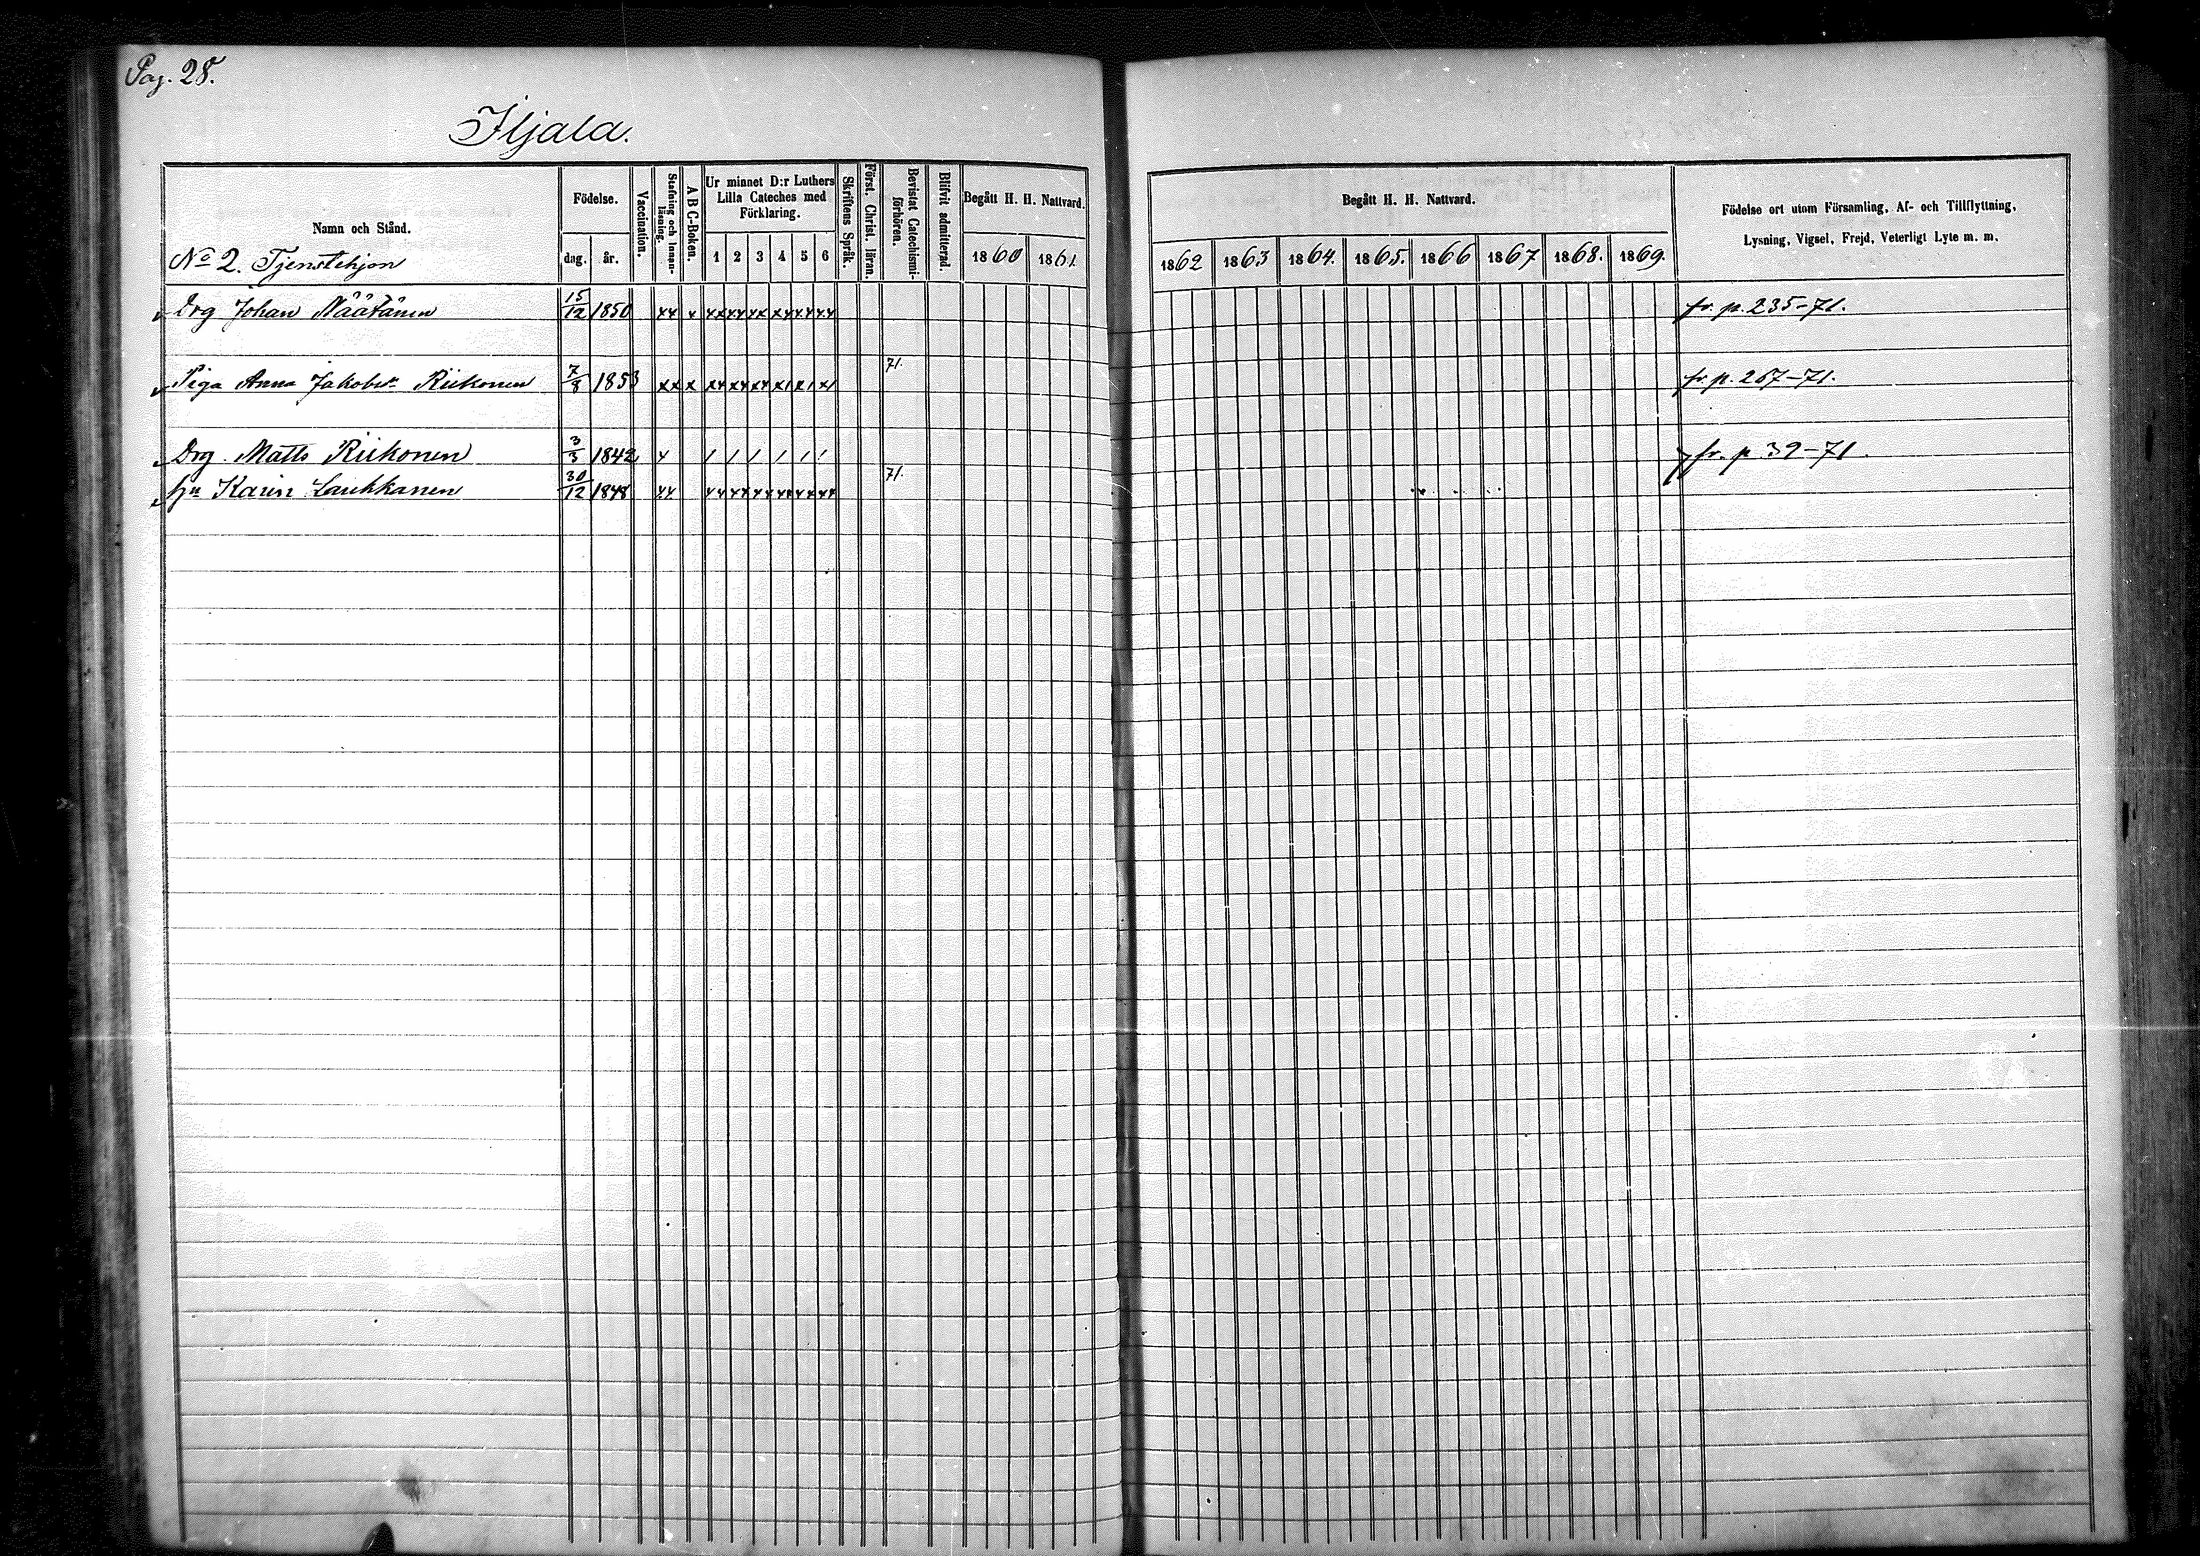 Pag. 28.
Iljala.
Namn och Stånd.
No 2. Tjenstehjon
Födelse.
dag. år.
Vaccination.
Stafning och Innen-
läsning.
A B C-Boken.
Ur minnet D:r Luthers
Lilla Cateches med
Förklaring.
1 2 3 4 5 6
Skriftens Språk.
Först. Christ. läran.
Bevistat Catechismi-
förhören.
Blifvit admitterad.
Begått H. H. Nattvard.
1860 1861
Begått H. H. Nattvard.
1862 1863 1864. 1865. 1866 1867 1868. 1869.
Födelse ort utom Församling, Af- och Tillflyttning,
Lysning, Vigsel, Frejd, Veterligt Lyte m. m.
Drg Johan Näätänen 15/12 1850 fr. p. 235-71.
71.
Piga Anna Jakobsr. Riikonen 7/8 1853 fr. p. 267-71.
Drg. Matts Riikonen 3/3 1842 fr. p 39-71.
71
hu Karin Laukkanen 30/12 1848